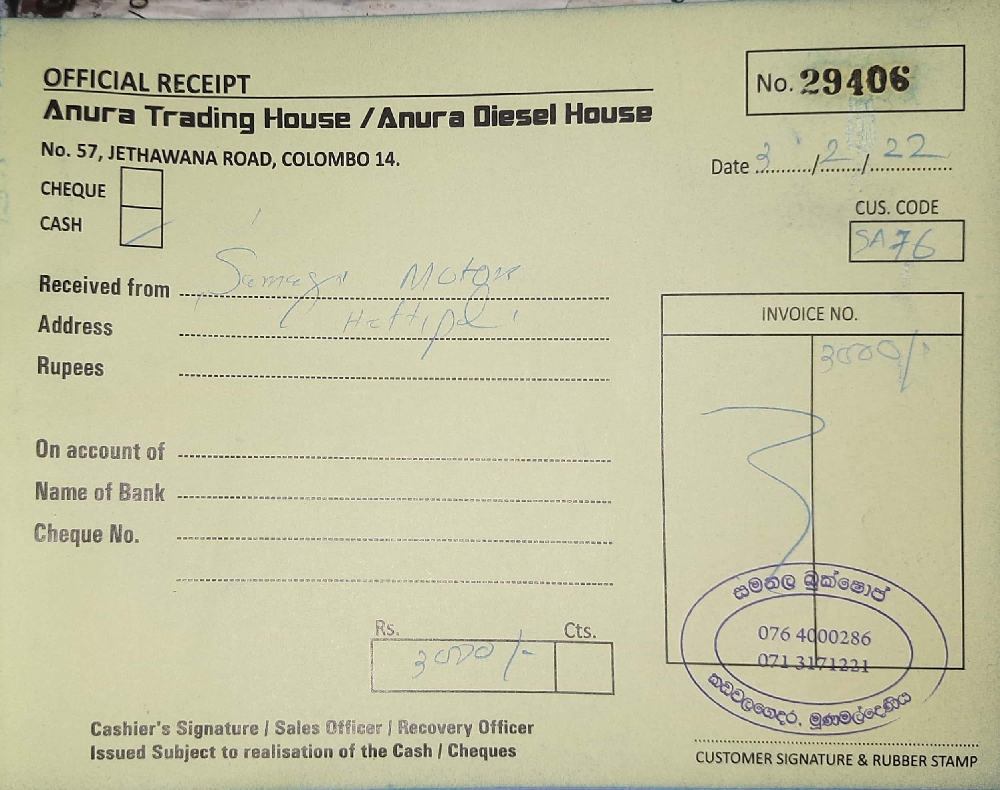 OFFICIAL RECEIPT
No. 29406
Anura Trading House / Anura Diesel House
No. 57, JETHAWANA ROAD, COLOMBO 14.
Date 3 / 2 / 22
CHEQUE
CASH
CUS. CODE
SA76
Received from Motors
Address
Rupees
INVOICE NO.
3000/-
On account of
Name of Bank
Cheque No.
Rs. Cts.
3000/-
සමනල බුක්ෂොප්
076 4000286
071 3171221
කඩවලගෙදර, මූණමල්දෙණිය
Cashier's Signature / Sales Officer / Recovery Officer
Issued Subject to realisation of the Cash / Cheques
CUSTOMER SIGNATURE & RUBBER STAMP